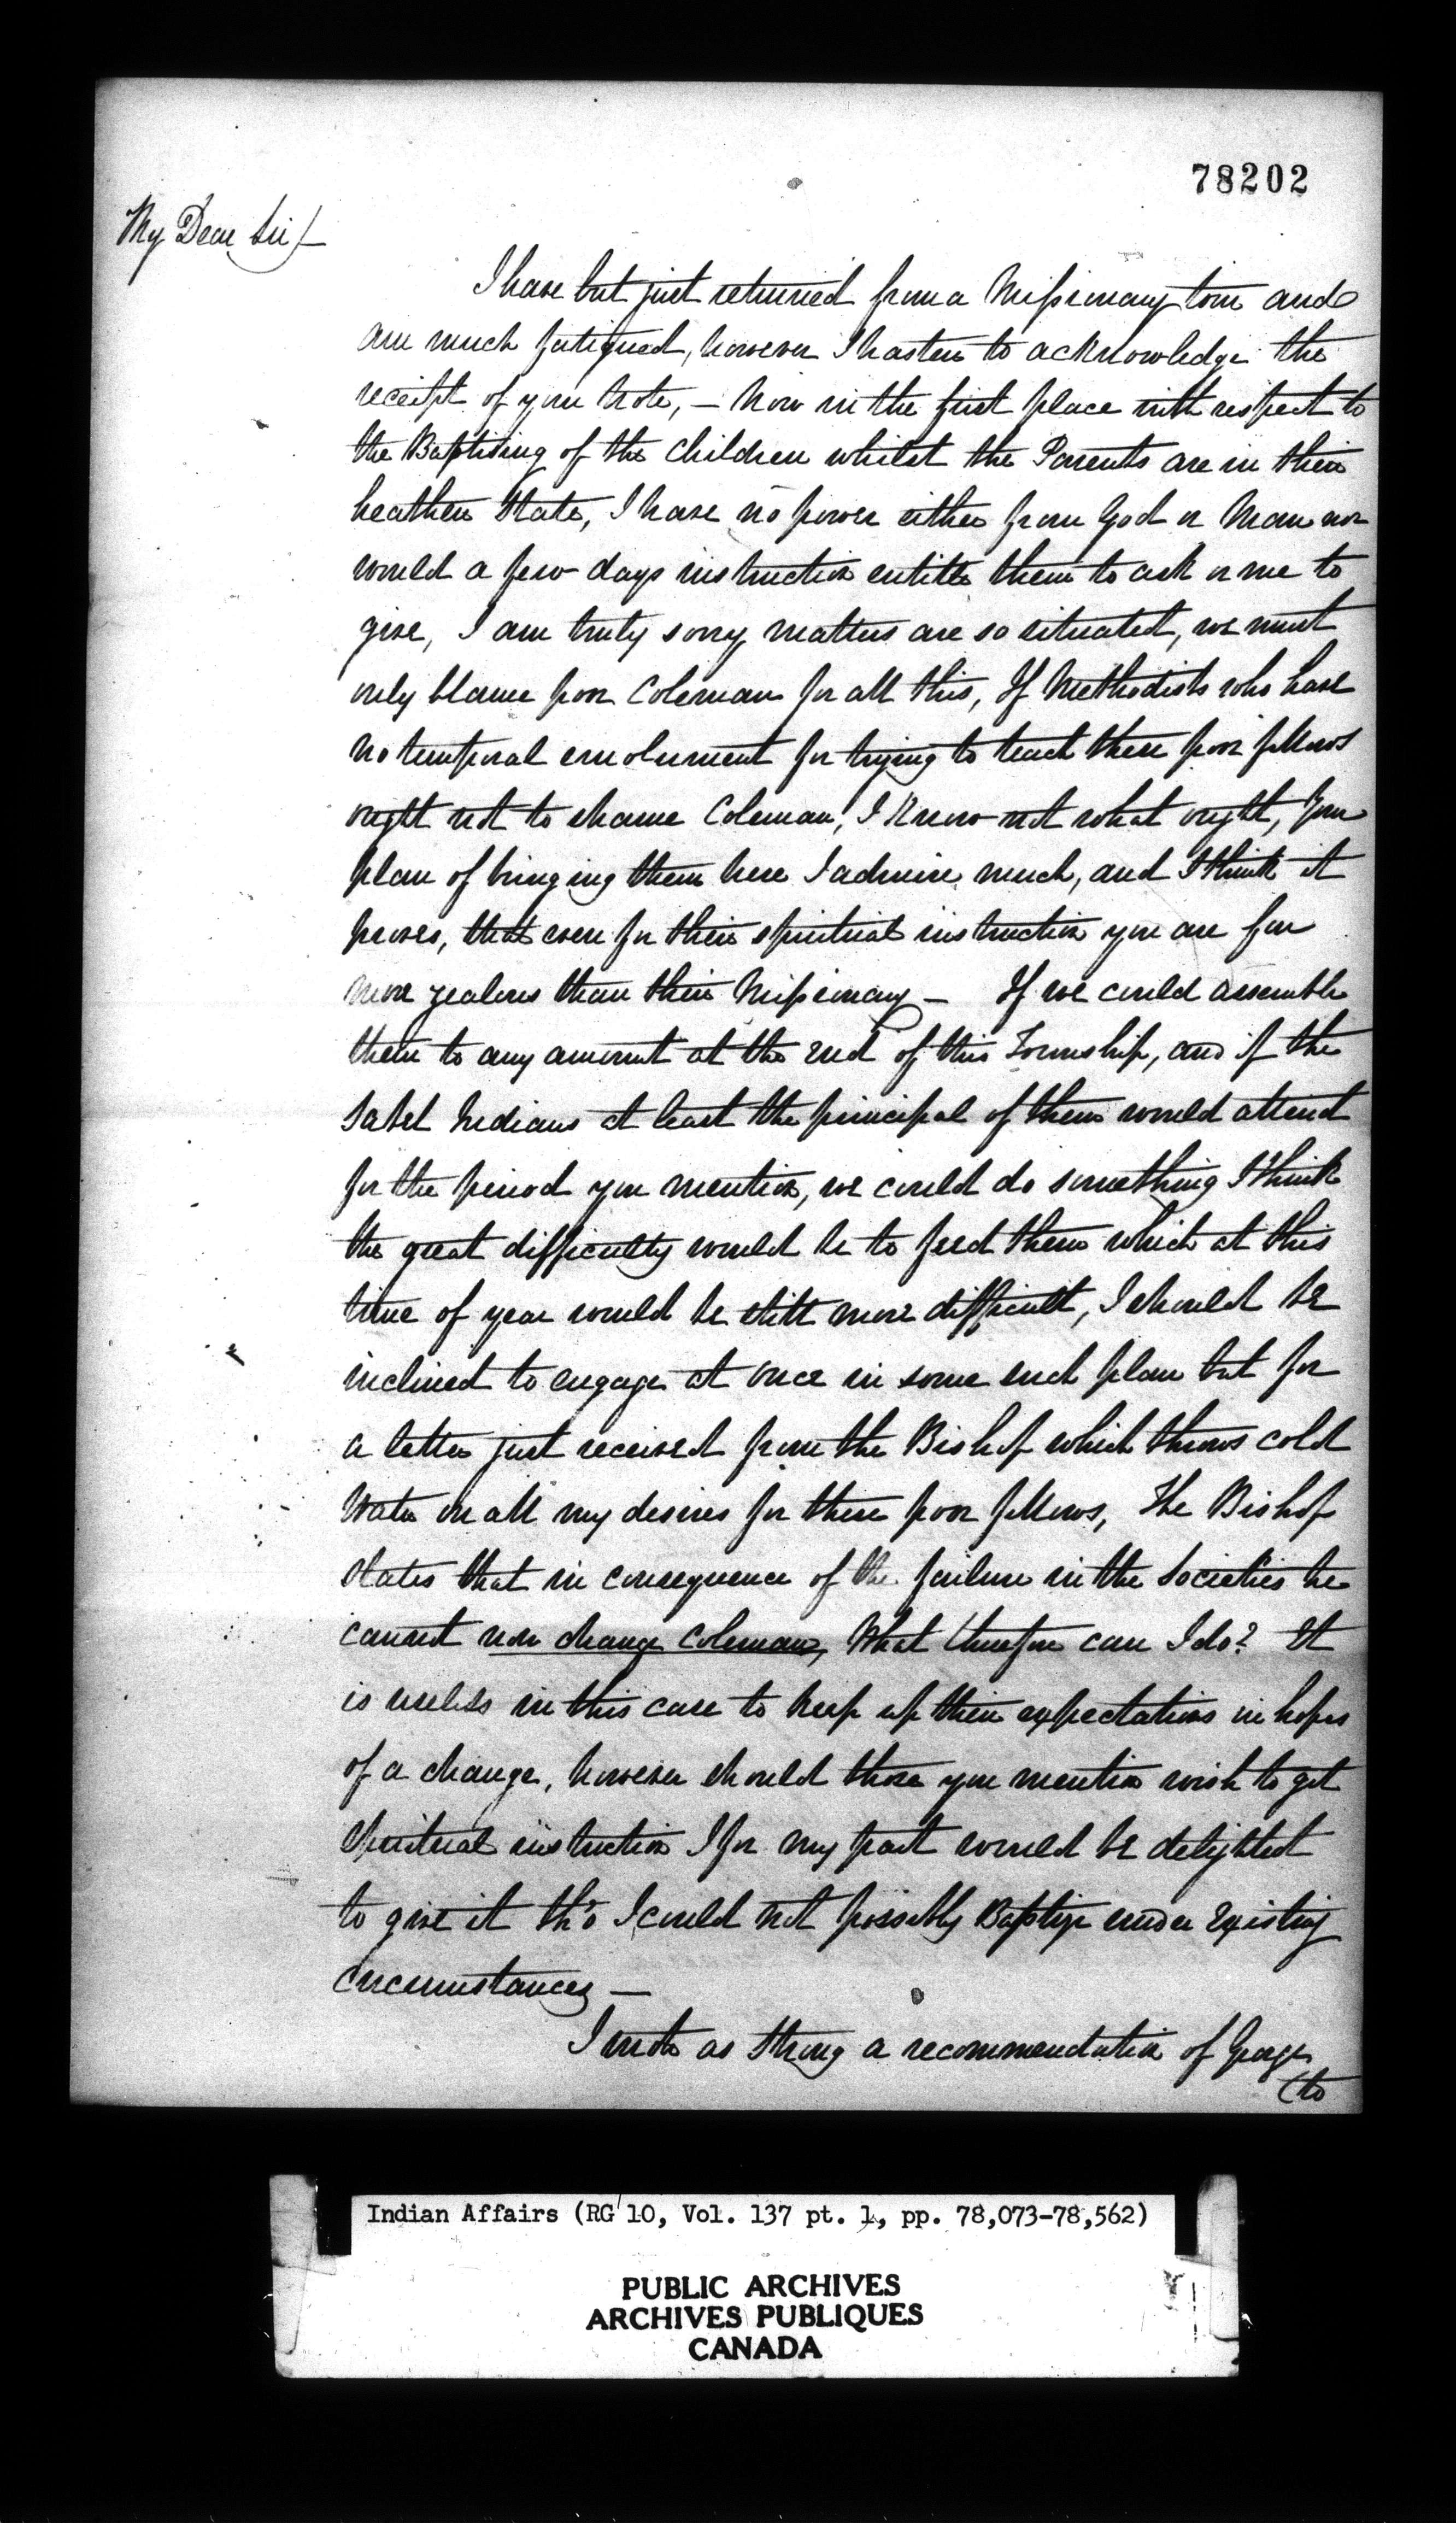 78202
My Dear Sir/
I have but just returned from a Missionary tour and
am much fatigued, however I hasten to acknowledge the
receipt of your Note, — Now in the first place with respect to
the Baptising of the Children whilst the Parents are in their
heathen State, I have no power either from God or Man nor
would a few days instruction entitle them to ask or me to
give, I am truly sorry matters are so situated, we must
only blame poor Coleman for all this, If Methodists who have
no temporal emolument for trying to teach these poor fellows
ought not to shame Coleman, I Know not what ought, Your
plan of bringing them here I admire much, and I think it
proves, that even for their spiritual instruction you are far
more zealous than their Missionary — If we could assemble
them to any amount at the end of this Township, and if the
Sabel Indians at least the principal of them would attend
for the period you mention, we could do something I think
the great difficulty would be to feed them which at this
time of year would be still more difficult, I should be
inclined to engage at once in some such plan but for
a letter just received from the Bishop which throws cold
Water on all my desires for these poor fellows, The Bishop
states that in consequence of the failure in the Societies he
cannot now change Coleman, What therefore can I do? It
is useless in this case to keep up their expectations in hopes
of a change, however should those you mention wish to get
Spiritual instruction I for my part would be delighted
to give it tho' I could not possibly Baptize under Existing
circumstances —
I wrote as strong a recommendation of George
(to
Indian Affairs (RG 10, Vol. 137 pt. 1, pp. 78,073-78,562)
PUBLIC ARCHIVES
ARCHIVES PUBLIQUES
CANADA